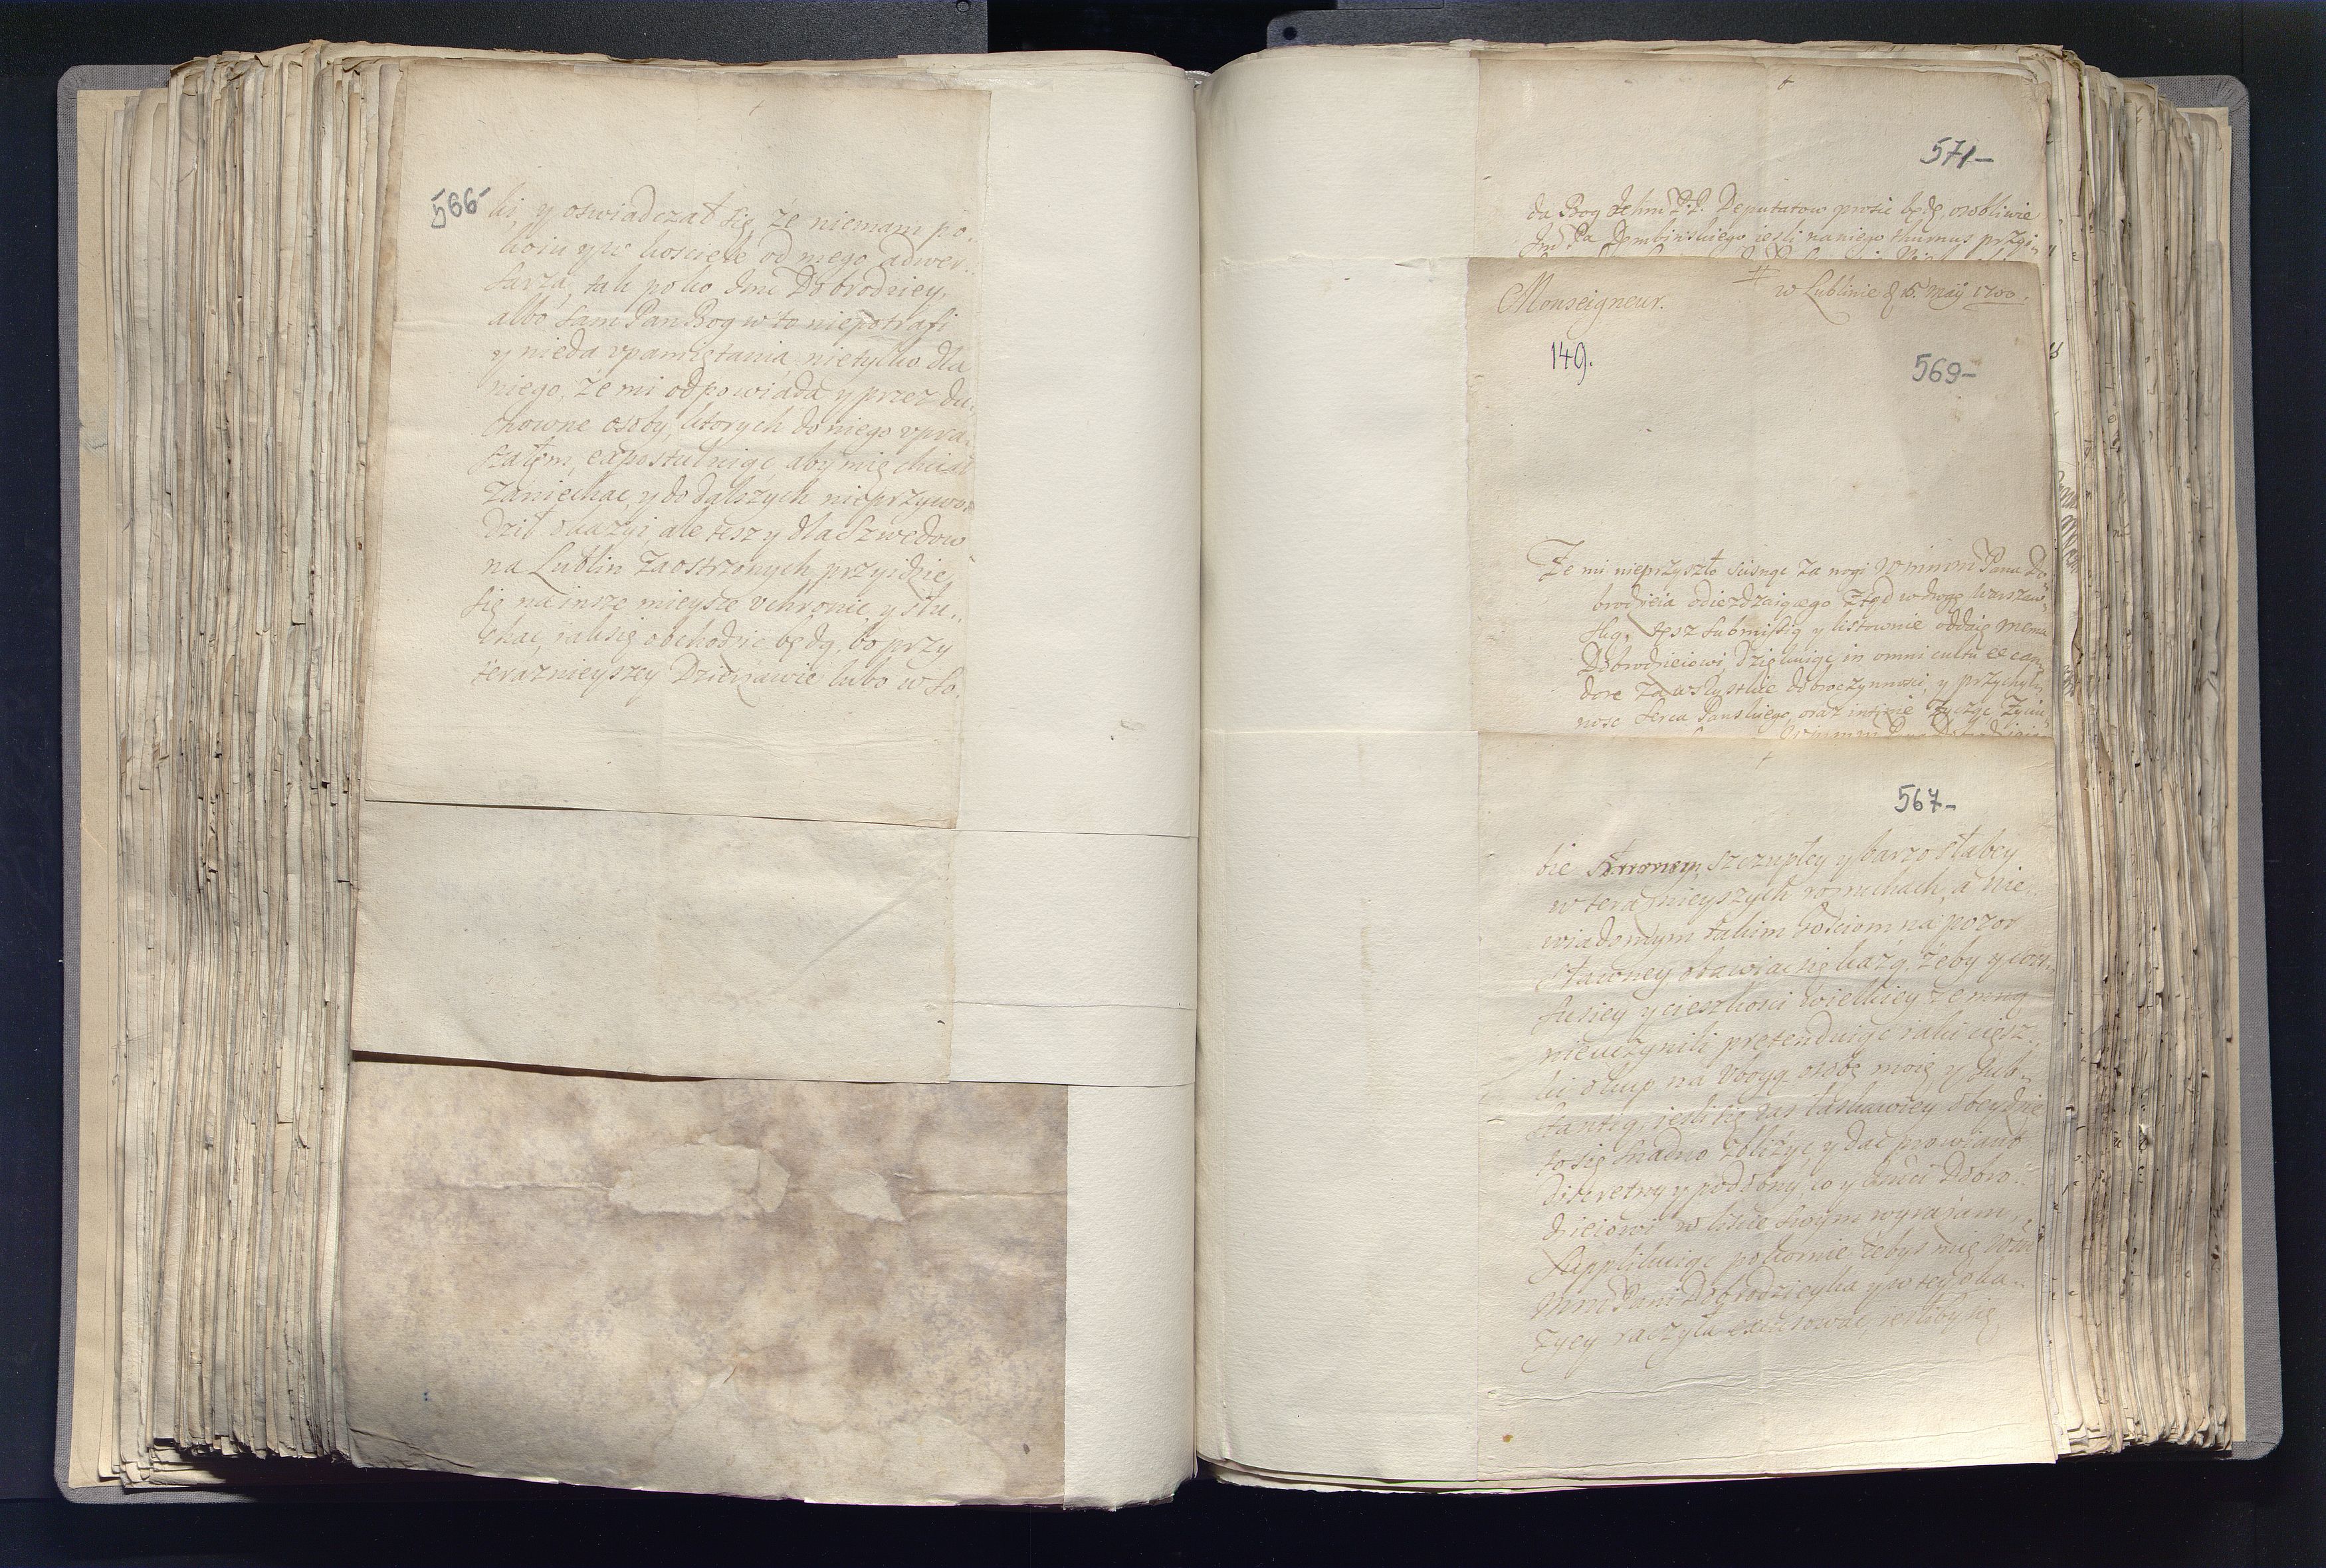 566
ki, y oswiadczał się, że niemam po..
koiu y w kosciele od mego adwer..
sarza, tak poko Jmć Dobrodziey,
albo sam Pan Bog w to niepotrafi
y nieda vpamiętania, nietylko dla
niego, że mi odpowiada y przez du..
chowne osoby, ktorych do niego vpra..
szałem, expostuluiąc aby mię chciał
zaniechac, y do dalszych nieprzywo..
dził okazyi, ale tesz y dla Szwedow
na Lublin zaostrzonych, przyidzie
się na insze mieysce vchronic, y słu..
chac, iak się obchodzic będą, bo przy
teraznieyszey Dzierzawie lubo w so.
571
da Bog Ichm P.P. Deputatow prosic będę, osobliwie
Jmć Pa Dembinskiego, iesli na niego
Monseigneur.
w Lublinie d 5. Maÿ 1700.
149.
569
Że mi nieprzyszło scisnąc za nogi Wmm Pana Do
brodzieia odiezdzaiącego ztąd w drogę Warszaw
ską, tesz submissią y listownie oddaię memu
Dobrodzieiowi, dziękuiąc in omni cultu et can
dore za wszystkie dobroczynnosci, y przychyl
nosc serca Panskiego, oraz życząc
567
bie szczupłey y barzo słabey
w teraznieyszych rozruchach, a nie..
wiadomym takim Gosciom na pozor
sławney, obawiac się każą, żeby y con..
fusiey y cieszkosci wielkiey ze mną
nieuczynili pretenduiąc iaki ciesz..
ki okup na vbogą osobę moię y sub..
stantią, iesli się zas łaskawiey obeydzie
to się snadno zbliżyc, y dac prowiant
discretny y podobny, co y Jmci Dobro..
dzieiowi w liscie swoym wyrazam,
supplikuiąc pokornie żebys mię Wm
Mm Pani Dobrodzieyka y w tey oka..
zyey raczyła excusowac, iesliby się